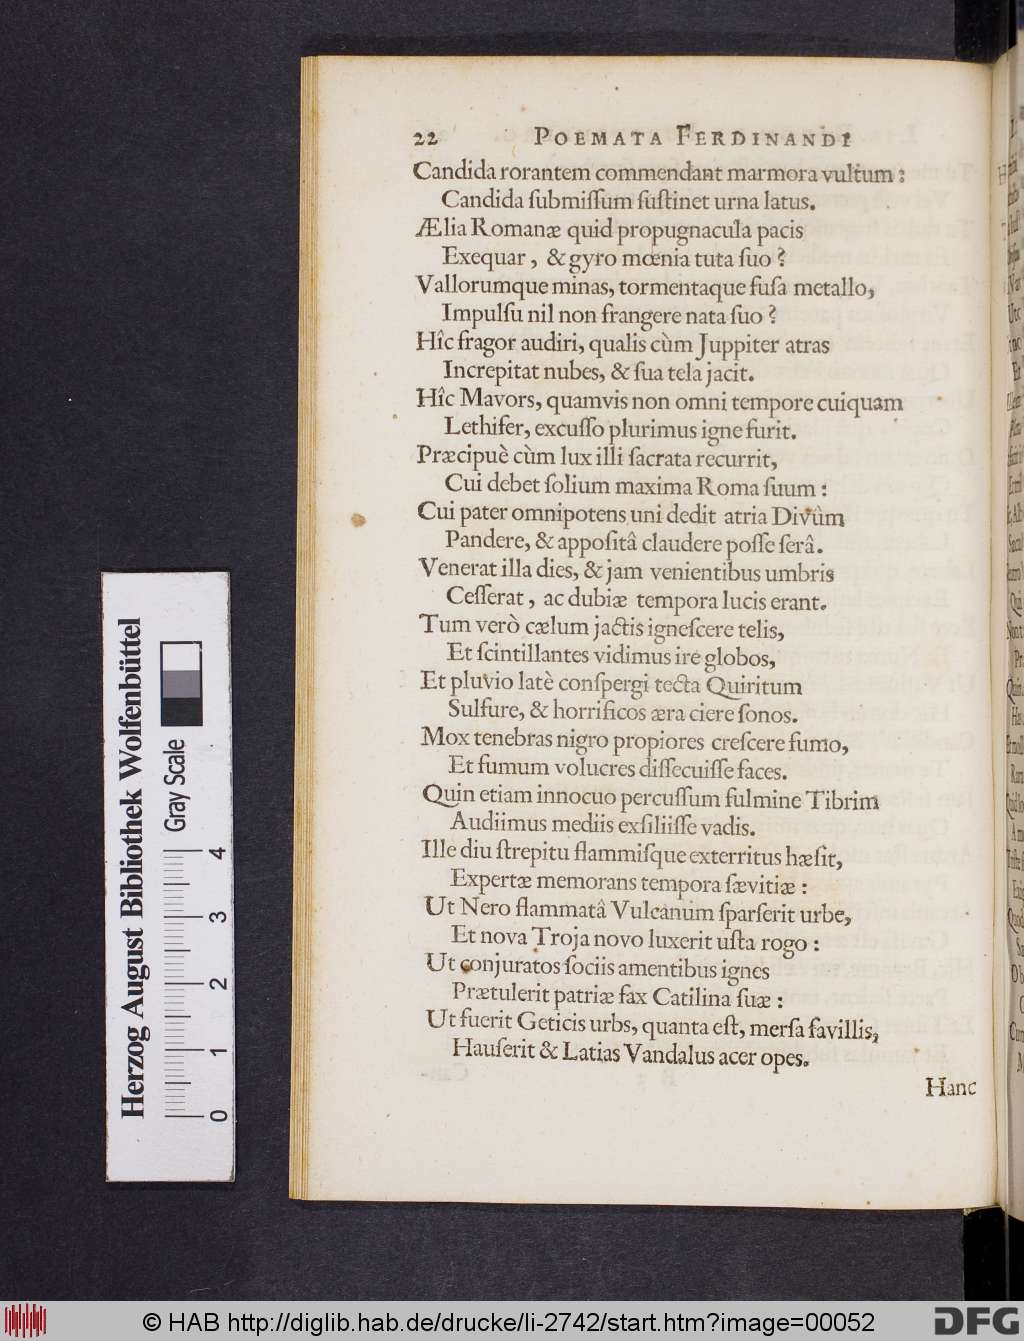 22 POEMATA FERDINANDI
Candida rorantem commendant marmora vultum :
Candida ſubmiſſum ſuſtinet urna latus.
Ælia Romanæ quid propugnacula pacis
Exequar , & gyro mœnia tuta ſuo ?
Vallorumque minas, tormentaque fuſa metallo,
Impulſu nil non frangere nata ſuo ?
Hîc fragor audiri, qualis cùm Juppiter atras
Increpitat nubes, & ſua tela jacit.
Hîc Mavors, quamvis non omni tempore cuiquam
Lethifer, excuſſo plurimus igne furit.
Præcipuè cùm lux illi ſacrata recurrit,
Cui debet ſolium maxima Roma ſuum :
Cui pater omnipotens uni dedit atria Divûm
Pandere, & appoſitâ claudere poſſe ſerâ.
Venerat illa dies, & jam venientibus umbris
Ceſſerat , ac dubiæ tempora lucis erant.
Tum verò cælum jactis igneſcere telis,
Et ſcintillantes vidimus ire globos,
Et pluvio latè conſpergi tecta Quiritum
Sulfure, & horrificos æra ciere ſonos.
Mox tenebras nigro propiores creſcere fumo,
Et fumum volucres diſſecuiſſe faces.
Quin etiam innocuo percuſſum fulmine Tibrim
Audiimus mediis exſiliiſſe vadis.
Ille diu ſtrepitu flammiſque exterritus hæſit,
Expertæ memorans tempora ſævitiæ :
Ut Nero flammatâ Vulcanum ſparſerit urbe,
Et nova Troja novo luxerit uſta rogo :
Ut conjuratos ſociis amentibus ignes
Prætulerit patriæ fax Catilina ſuæ :
Ut fuerit Geticis urbs, quanta eſt, merſa favillis,
Hauſerit & Latias Vandalus acer opes.
Hanc
Herzog August Bibliothek Wolfenbüttel
Gray Scale
0 1 2 3 4
© HAB http://diglib.hab.de/drucke/li-2742/start.htm?image=00052
DFG